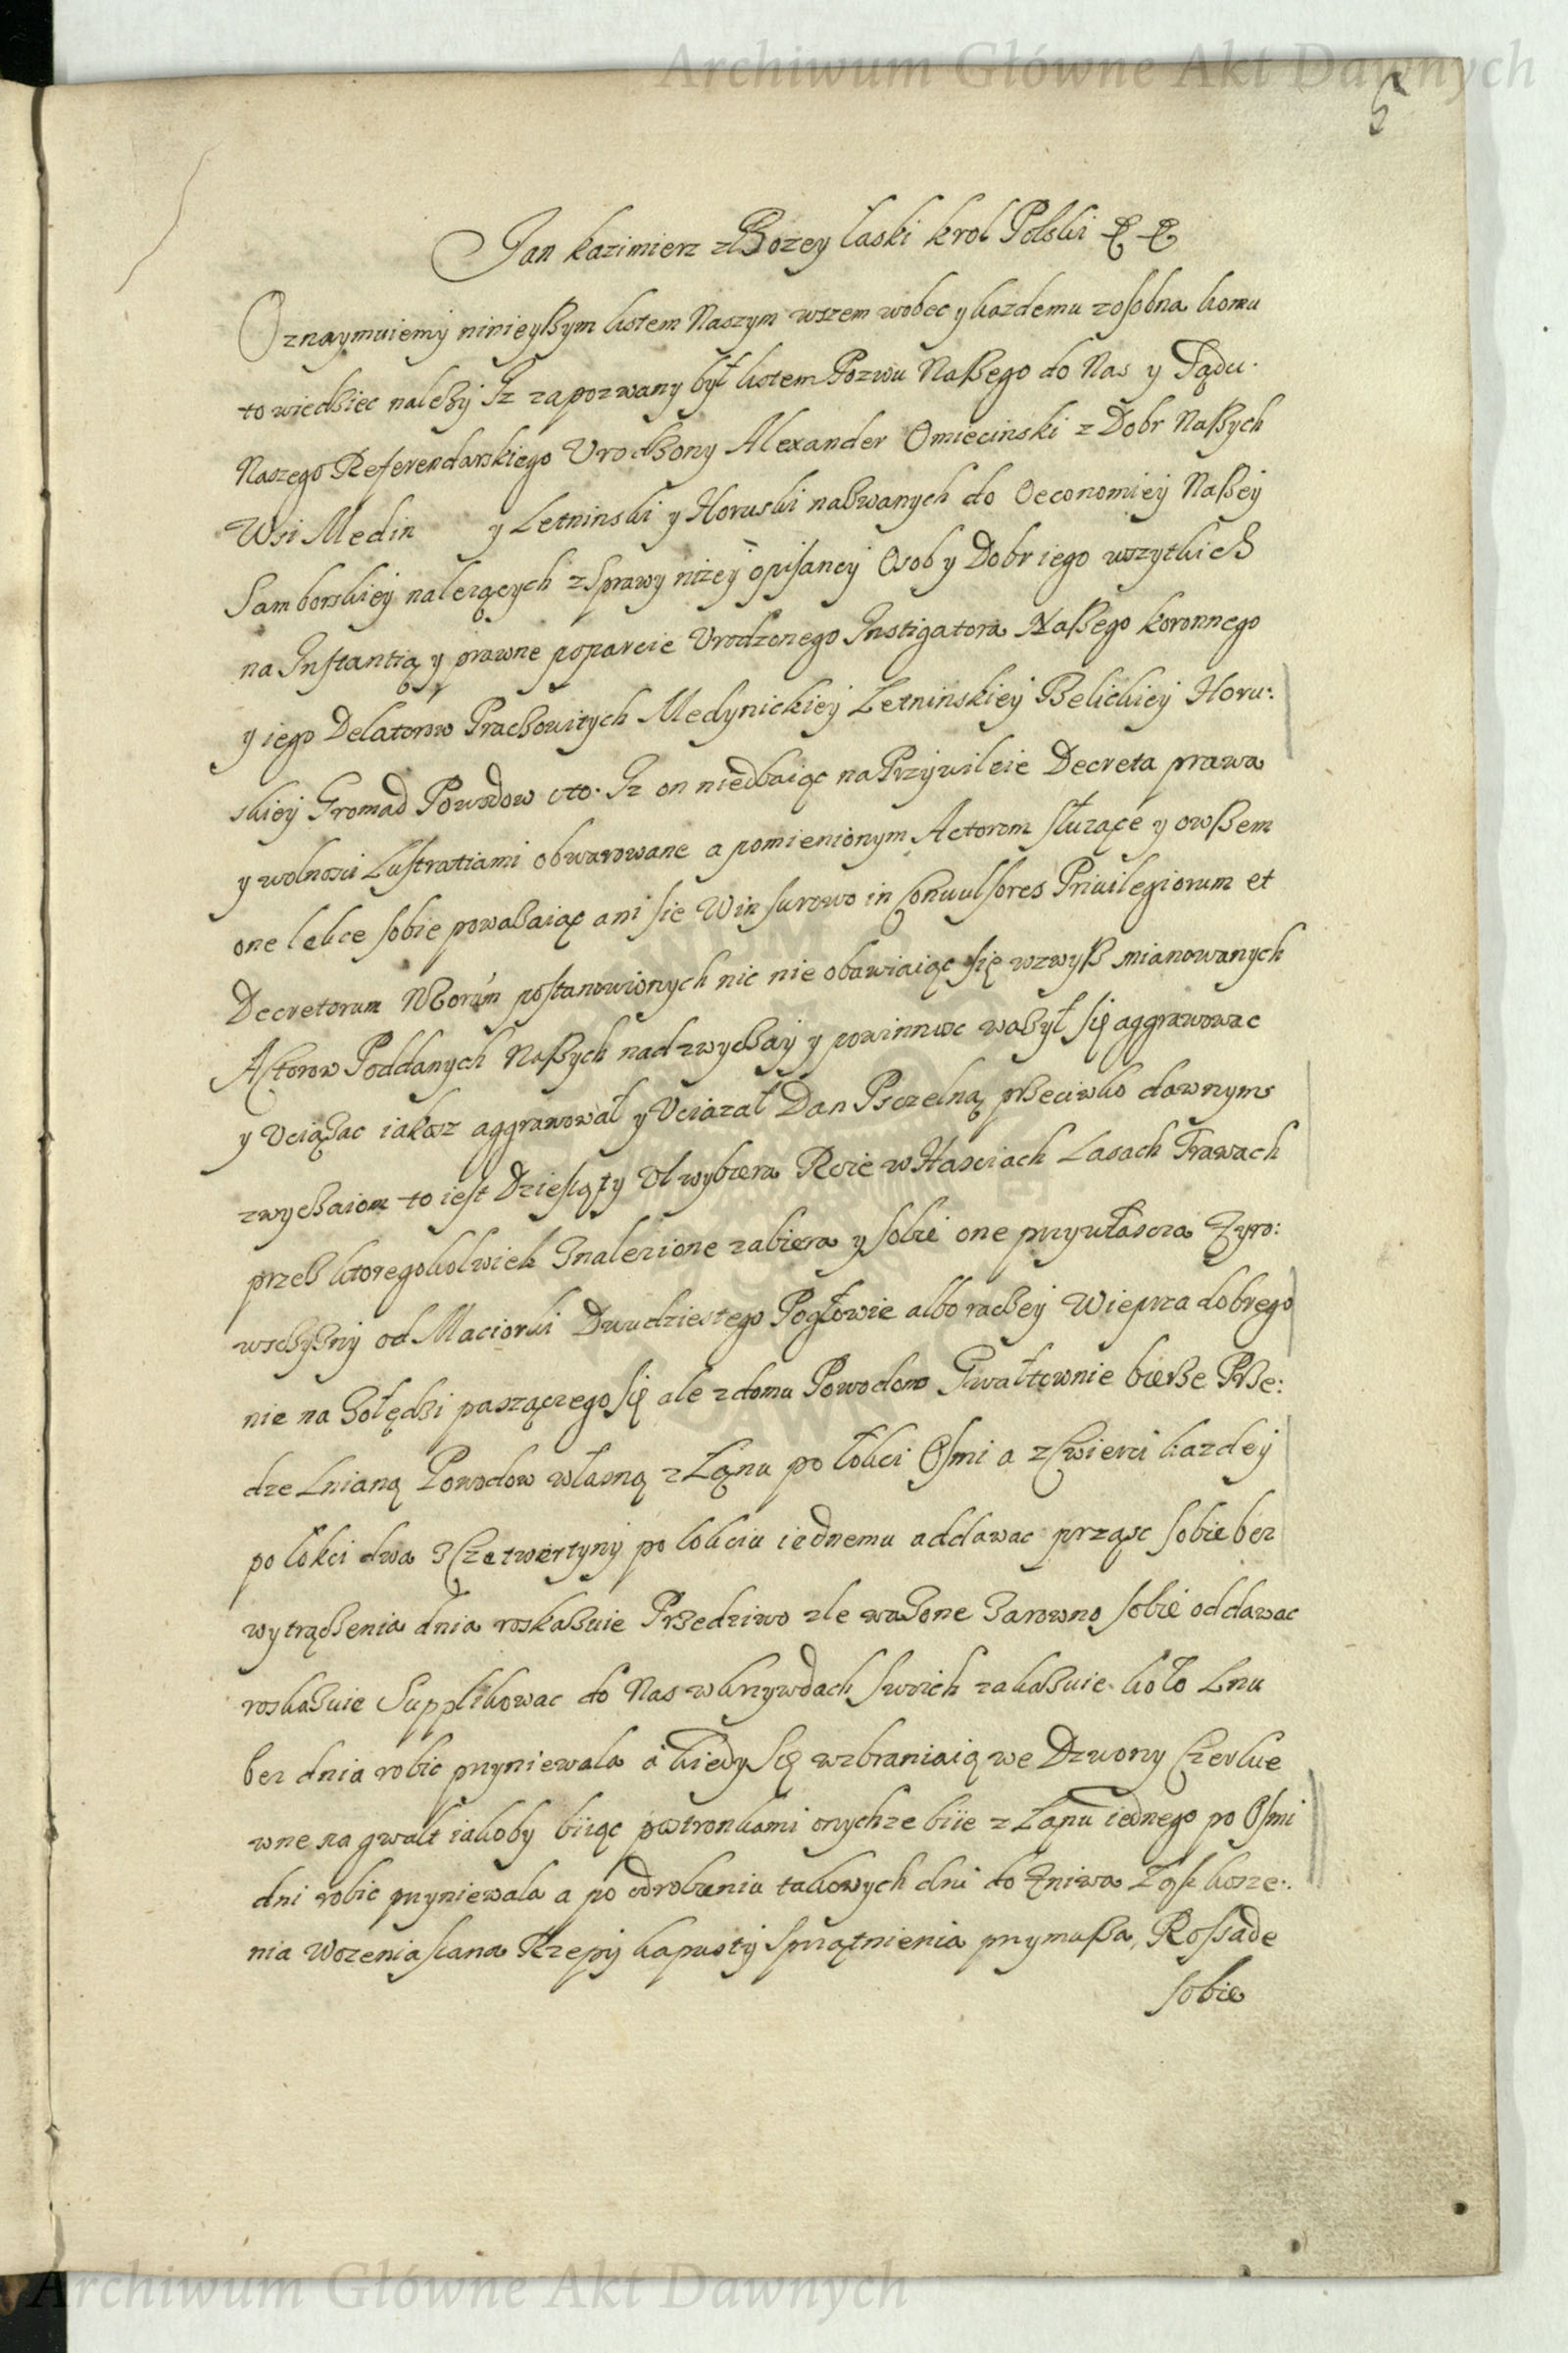 Archiwum Główne Akt Dawnych
5
Jan Kazimierz z Bozey łaski krol Polski
Oznaymuiemy ninieyszym listem Naszym wszem wobec y kazdemu zosobna komu
to wiedziec nalezy Iz zapozwany był listem Pozwu Naszego do Nas y Sądu
Naszego Referendarskiego Vrodzony Alexander Omiecinski z Dobr Naszych
Wsi Medin y Letninski y Horuski nazwanych do Oeconomiey Naszey
Samborskiey nalezących z Sprawy nizey opisaney Osoby Dobr iego wszytkich
na Instantią y prawne poparcie Vrodzonego Instigatora Naszego koronnego
y iego Delatorow Pracowitych Medynickiey Letninskiey Belickiey Horu:
skiey Gromad Powodow oto. Iz on niedbaiąc na Przywileie Decreta prawa
y wolnosci Lustratiami obwarowane a pomienionym Actorom słuzące y owszem
one lekce sobie powazaiąc ani sie Win surowo in Convulsores Privilegiorum et
Decretorum Nrorum postanowionych nic nie obawiaiąc się wzwysz mianowanych
Actorow Poddanych Naszych nad zwyczay y powinnosc wazył się aggrawowac
y Vciązac iakosz aggrawował y Vciązał Dan Psczelną przeciwko dawnym
zwyczaiom to iest Dziesiąty Vl wybiera Roie w Hasciach Lasach Trawach
przez ktoregokolwiek Znalezione zabiera y sobie one przywłascza Zyro:
wsczyzny od Maciorki Dwudziestego Pogłowie albo raczey Wieprza dobrego
nie na Zołędzi paszączego się ale z domu Powodow Gwałtownie bierze Prze:
dze Lnianą Powodow własną z Łąnu po łokci Osmi a z Cwierci kazdey
po łokci dwa z Czetwertyny po łokciu iednemu oddawac prząsc sobie bez
wytrączenia dnia roskazuie Przedziwo zle wazone Zarowno sobie oddawac
roskazuie Supplikowac do Nas w krzywdach swoich zakazuie koło Lnu
bez dnia robic przyniewala a kiedy Się wzbraniaią we Dzwony Czerkie
wne na gwałt iakoby biiąc postronkami onychze biie z Łąnu iednego po Osmi
dni robic przyniewala a po odrobieniu takowych dni do Zniwa Łąk kosze:
nia Wozenia siana Rzepy kapusty Sprzątnienia przymusza, Rossade
sobie
Archiwum Główne Akt Dawnych